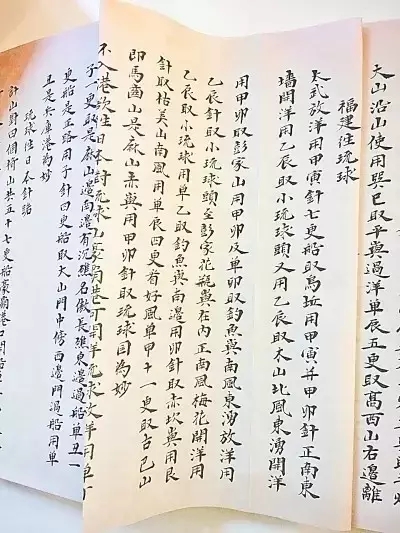 大山沿山使用巽巳取平與過洋單辰五更取髙西山右邊離
福建徃琉球
太武放洋用甲寅針七更船取烏坵用甲寅并甲卯針正南東
墻開洋用乙辰取小琉球頭又用乙辰取木山北風東湧開洋
用甲卯取彭家山用甲卯及單卯取釣魚與南風東湧放洋用
乙辰針取小琉球頭至彭家花瓶與在内正南風梅花開洋用
乙辰取小琉球用單乙取釣魚與南邊用卯針取赤坎與用艮
針取枯美山南風用單辰四更看好風單甲十一更取古巴山
即馬齒山是麻山赤與用甲卯針取琉球國為妙
不入港欲往日本對琉球山豪霸港可開洋琉球放洋用單丁
子一更取是麻山邊南邊有沉礁名做長礁東邊過船單丑一
更船是正路用子針四更船取大山門中傍西邊門過船用單
丑是兵庫港為妙
琉球往日本針路
針山對四個椅山共五十七更船豪霸港口開